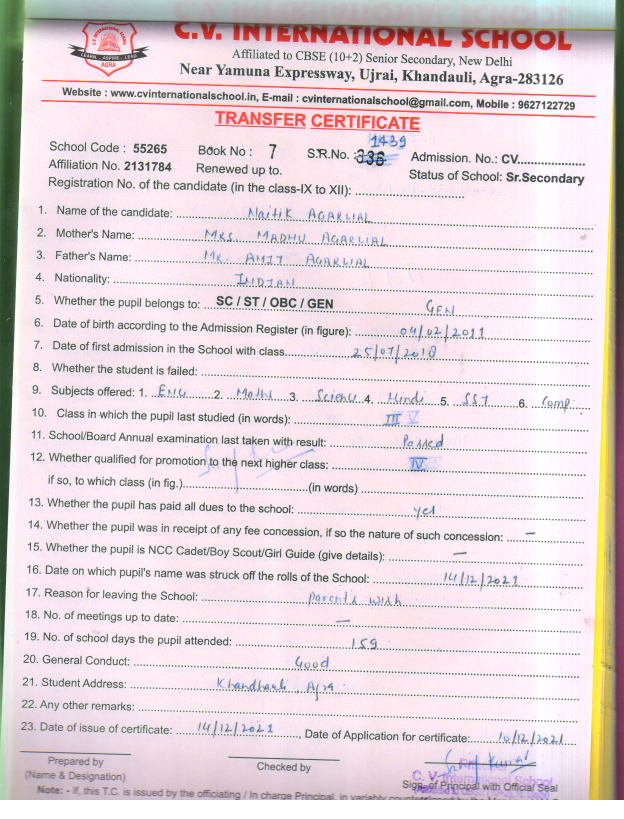 C.V. INTERNATIONAL SCHOOL
C.V. INTERNATIONAL SCHOOL
LEARN ASPIRE LEAD
AGRA
Affiliated to CBSE (10+2) Senior Secondary, New Delhi
Near Yamuna Expressway, Ujrai, Khandauli, Agra-283126
Website : www.cvinternationalschool.in, E-mail : cvinternationalschool@gmail.com, Mobile : 9627122729
TRANSFER CERTIFICATE
1439
School Code : 55265 Book No : 7 S.R.No. : 338 Admission. No.: CV..................
Affiliation No. 2131784 Renewed up to. Status of School: Sr.Secondary
Registration No. of the candidate (in the class-IX to XII): ..............................
1. Name of the candidate: Naitik AGARWAL
2. Mother's Name: MRS. MADHU AGARWAL
3. Father's Name: MR. AMIT AGARWAL
4. Nationality: INDIAN
5. Whether the pupil belongs to: SC / ST / OBC / GEN GEN
6. Date of birth according to the Admission Register (in figure): 04/02/2011
7. Date of first admission in the School with class 25/07/2018
8. Whether the student is failed:
9. Subjects offered: 1. ENG 2. Maths 3. Science 4. Hindi 5. SST 6. Comp
10. Class in which the pupil last studied (in words): III V
11. School/Board Annual examination last taken with result: Passed
12. Whether qualified for promotion to the next higher class: IV
if so, to which class (in fig.)..............................(in words)
13. Whether the pupil has paid all dues to the school: yes
14. Whether the pupil was in receipt of any fee concession, if so the nature of such concession: —
15. Whether the pupil is NCC Cadet/Boy Scout/Girl Guide (give details): —
16. Date on which pupil's name was struck off the rolls of the School: 14/12/2021
17. Reason for leaving the School: parent's wish
18. No. of meetings up to date: —
19. No. of school days the pupil attended: 159
20. General Conduct: Good
21. Student Address: Khandauli, Agra
22. Any other remarks:
23. Date of issue of certificate: 14/12/2021, Date of Application for certificate: 10/12/2021
Prepared by Checked by
(Name & Designation) C. V. International School
Sign. of Principal with Official Seal
Note: - If, this T.C. is issued by the officiating / In charge Principal, in variably